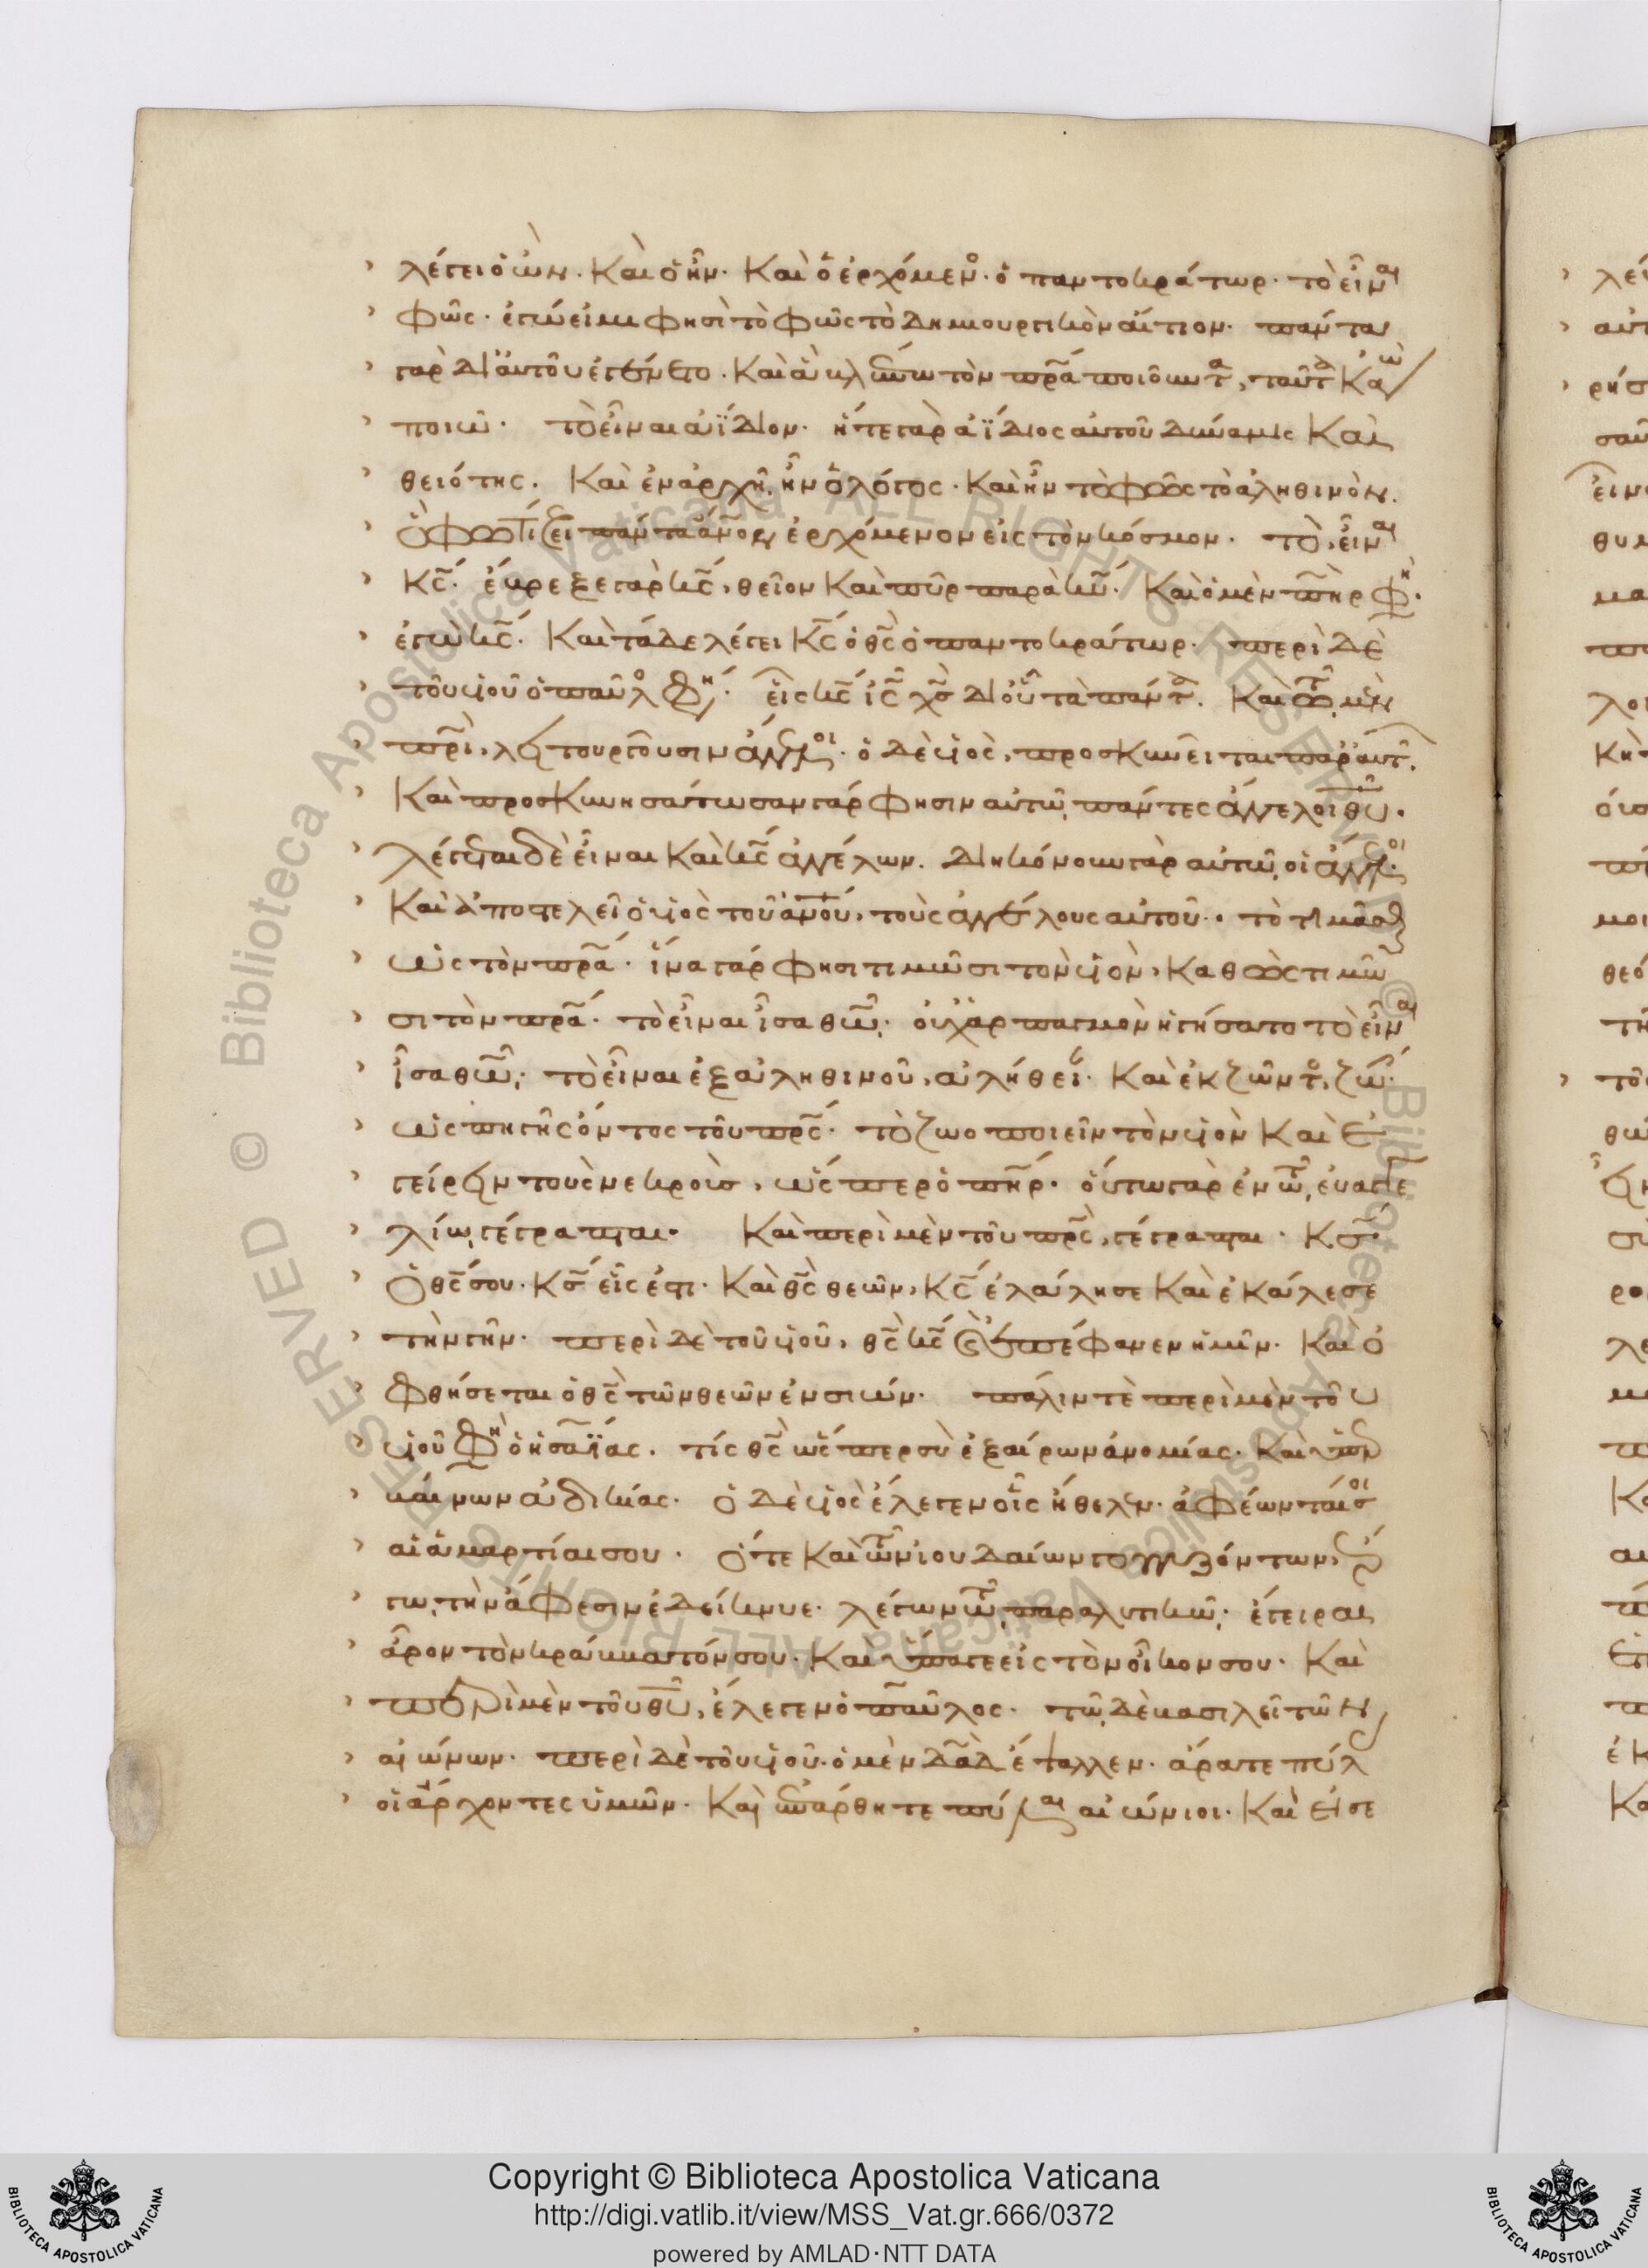 λέγει ὁ ὤν. Καὶ ὁ ἦν. Καὶ ὁ ἐρχόμεν. ὁ παντοκράτωρ. τὸ εἶναι
φῶς. ἐγώ εἰμι φησὶ τὸ φῶς τὸ δημιουργικὸν αἴτιον. πάντα
γὰρ δι' αὐτοῦ ἐγένετο. Καὶ ἃ βλέπω τὸν πρᾶ ποιοῦντα, ταῦτα Κἀγὼ
ποιῶ. τὸ εἶναι ἀΐδιον. ἥ τε γὰρ ἀΐδιος αὐτοῦ δύναμις Καὶ
θειότης. Καὶ ἐν ἀρχῇ ἦν ὁ λόγος. Καὶ ἦν τὸ φῶς τὸ ἀληθινόν.
ὃ φωτίζει πάντα ἄνον ἐρχόμενον εἰς τὸν κόσμον. τὸ εἶναι
Κς. ἔβρεξε γὰρ κς, θεῖον Καὶ πῦρ παρὰ κυ. Καὶ ὁ μὲν πηρ φη.
ἐγὼ κς. Καὶ τάδε λέγει Κς ὁ θς ὁ παντοκράτωρ. περὶ δὲ
τοῦ υἱοῦ ὁ παῦλο φη. εἷς κς ις χς δι' οὗ τὰ πάντα. Καὶ τῶ μὲν
πρι, λειτουργοῦσιν ἄγγελοι. ὁ δὲ υἱὸς, προσκυνεῖται παρ' αὐτ.
Καὶ προσκυνησάτωσαν γάρ φησιν αὐτῷ, πάντες ἄγγελοι θυ.
λέγεται δὲ εἶναι Καὶ κς ἀγγέλων. διηκόνουν γὰρ αὐτῷ, οἱ ἄγγελοι.
Καὶ ἀποστελεῖ ὁ υἱὸς τοῦ ἀνου, τοὺς ἀγγέλους αὐτοῦ. τὸ τιμᾶσθ
ὡς τὸν πρα. ἵνα γάρ φησι τιμῶσι τὸν υἱὸν, Καθὼς τιμῶ
σι τὸν πρα. τὸ εἶναι ἶσα θω. οὐχ ἁρπαγμὸν ἡγήσατο τὸ εἶναι
ἶσα θω. τὸ εἶναι ἐξ ἀληθινοῦ, ἀλήθει. Καὶ ἐκ ζῶντο, ζῶ.
ὡς πηγῆς ὄντος τοῦ πρς. τὸ ζωοποιεῖν τὸν υἱὸν Καὶ ἐ
γείρειν τοὺς νεκροὺς, ὥσπερ ὁ πηρ. οὕτω γὰρ ἐν τῶ, εὐαγγε
λίῳ γέγραπται. Καὶ περὶ μὲν τοῦ πρς, γέγραπται. Κς
ὁ θς σου. Κς εἷς ἐστι. Καὶ θς θεῶν, Κς ἐλάλησε Καὶ ἐκάλεσε
τὴν γῆν. περὶ δὲ τοῦ υἱοῦ, θς κς καὶ ἐπέφανεν ἡμῖν. Καὶ ὀ
φθήσεται ὁ θς τῶν θεῶν ἐν σιών. πάλιν τε περὶ μὲν τοῦ
υἱοῦ φη ὁ ἡσαΐας. τίς θς ὥσπερ σὺ ἐξαίρων ἀνομίας. Καὶ ὑπερ
βαίνων ἀδικίας. ὁ δὲ υἱὸς ἔλεγεν οἷς ἤθελεν. ἀφέωνταί σοι
αἱ ἁμαρτίαι σου. ὅτε Καὶ τῶν ἰουδαίων γογγυζόντων,
τω, τὴν ἄφεσιν ἐδείκνυε. λέγων τῶ παραλυτικῷ. ἔγειραι
ἆρον τὸν κράββατόν σου. Καὶ ὕπαγε εἰς τὸν οἶκον σου. Καὶ
περὶ μὲν τοῦ θυ, ἔλεγεν ὁ παῦλος. τῷ δὲ βασιλεῖ τῶν
αἰώνων. περὶ δὲ τοῦ υἱοῦ. ὁ μὲν δαδ ἔψαλλεν. ἄρατε πύλ
οἱ ἄρχοντες ὑμῶν. Καὶ ἐπάρθητε πύλαι αἰώνιοι. Καὶ εἰσε
Copyright © Biblioteca Apostolica Vaticana
http://digi.vatlib.it/view/MSS_Vat.gr.666/0372
powered by AMLAD·NTT DATA